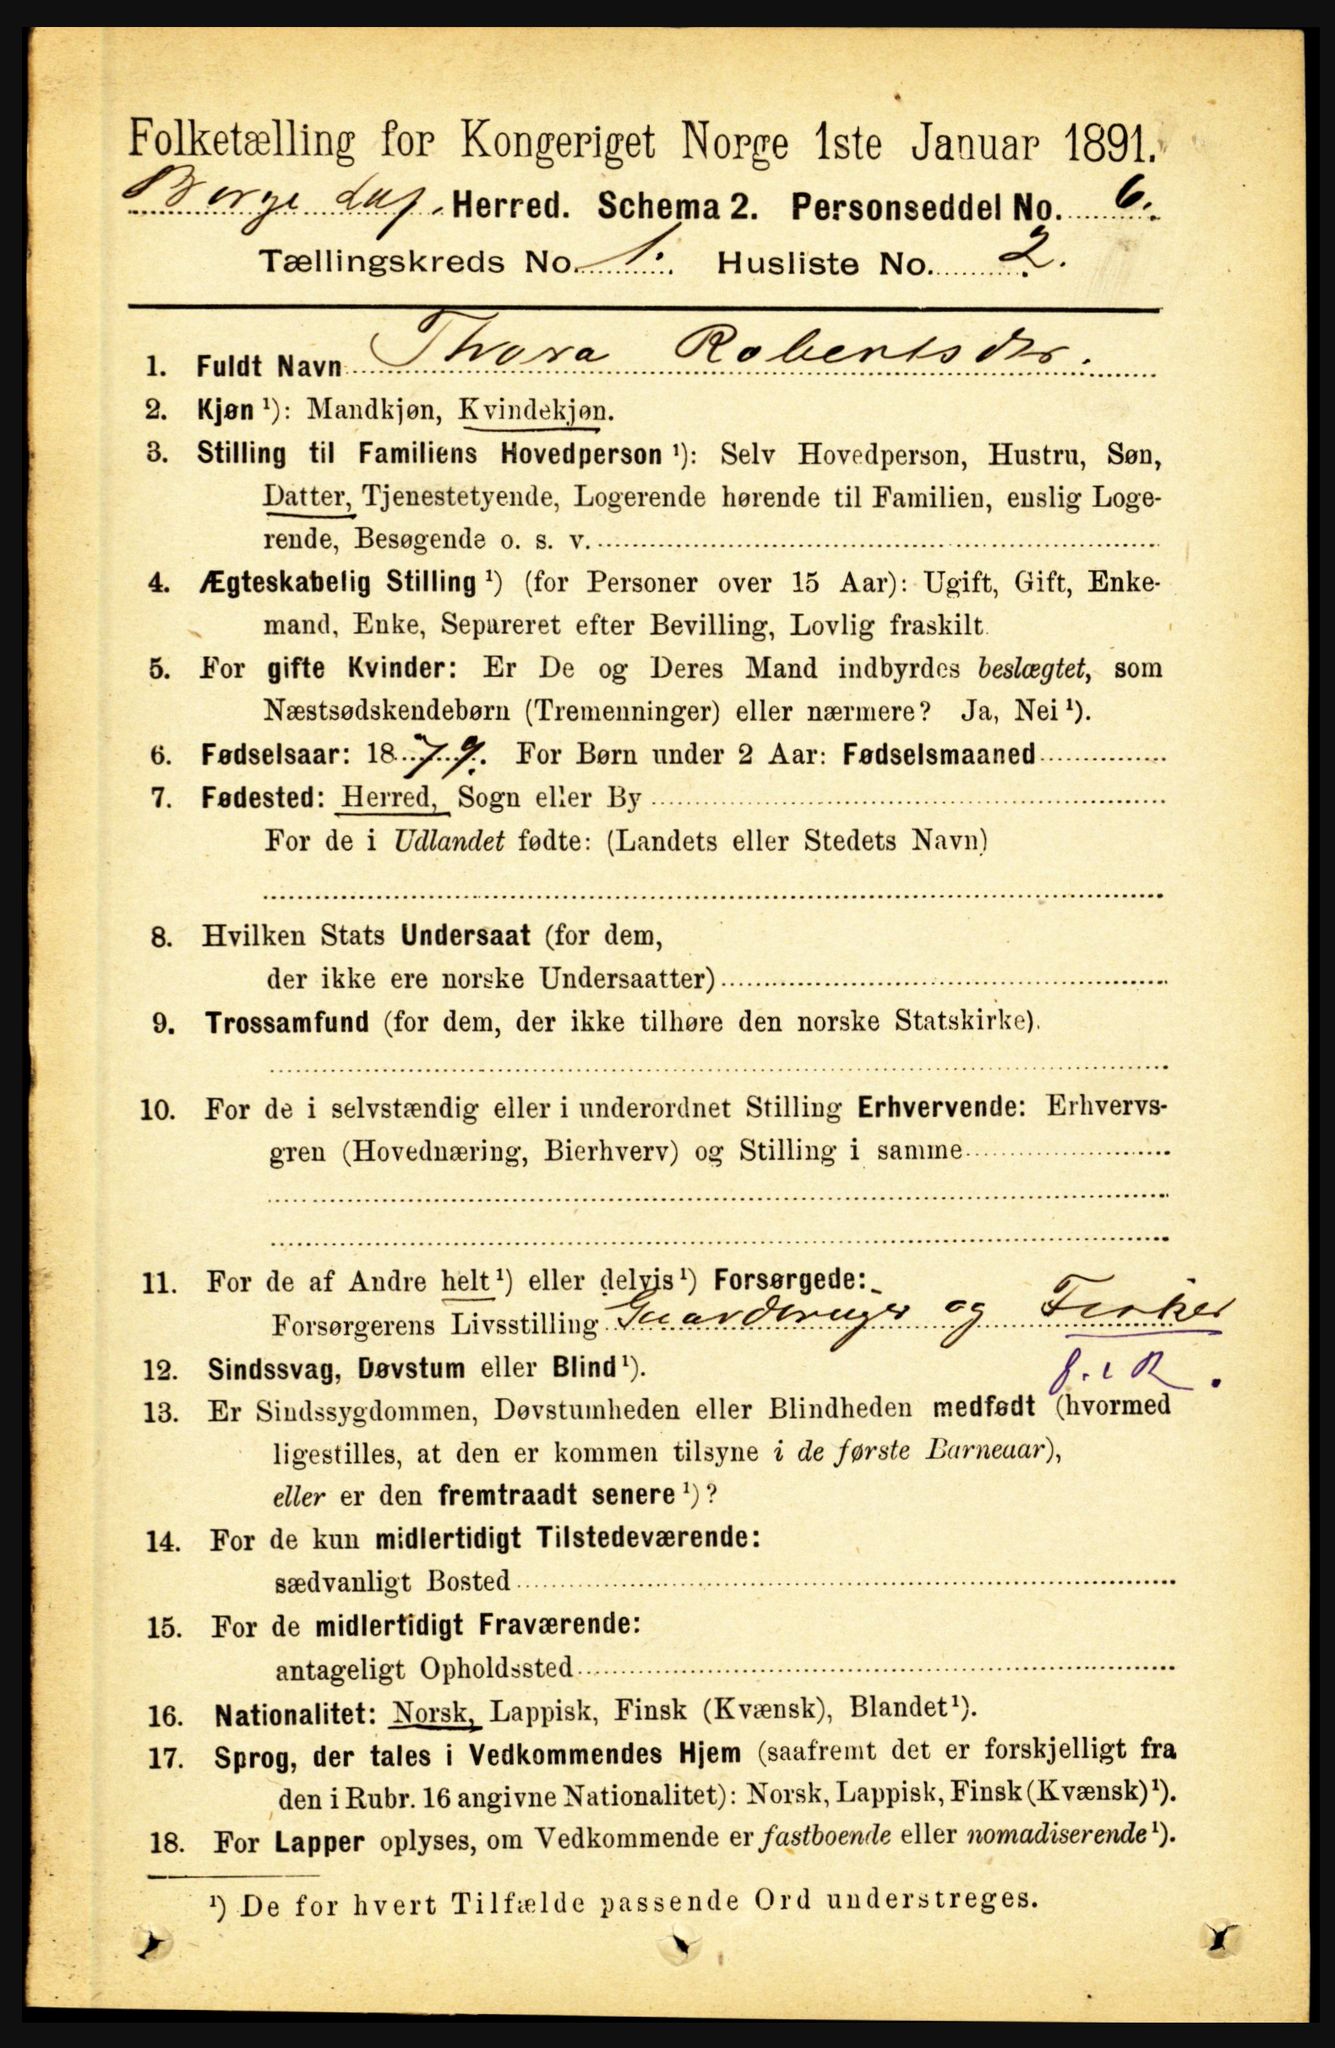 Folketælling for Kongeriget Norge 1ste Januar 1891.
Borge Herred. Schema 2. Personseddel No. 6.
Tællingskreds No. 1. Husliste No. 2.
1. Fuldt Navn Thora Robertsdtr.
2. Kjøn ¹): Mandkjøn, Kvindekjøn.
3. Stilling til Familiens Hovedperson ¹): Selv Hovedperson, Hustru, Søn,
Datter, Tjenestetyende, Logerende hørende til Familien, enslig Loge-
rende, Besøgende o. s. v.
4. Ægteskabelig Stilling ¹) (for Personer over 15 Aar): Ugift, Gift, Enke-
mand, Enke, Separeret efter Bevilling, Lovlig fraskilt.
5. For gifte Kvinder: Er De og Deres Mand indbyrdes beslægtet, som
Næstsødskendebørn (Tremenninger) eller nærmere? Ja, Nei ¹).
6. Fødselsaar: 1879. For Børn under 2 Aar: Fødselsmaaned
7. Fødested: Herred, Sogn eller By
For de i Udlandet fødte: (Landets eller Stedets Navn)
8. Hvilken Stats Undersaat (for dem,
der ikke ere norske Undersaatter)
9. Trossamfund (for dem, der ikke tilhøre den norske Statskirke).
10. For de i selvstændig eller i underordnet Stilling Erhvervende: Erhvervs-
gren (Hovednæring, Bierhverv) og Stilling i samme
11. For de af Andre helt ¹) eller delvis ¹) Forsørgede:
Forsørgerens Livsstilling Gaardbruger og Fisker
12. Sindssvag, Døvstum eller Blind ¹).
13. Er Sindssygdommen, Døvstumheden eller Blindheden medfødt (hvormed
ligestilles, at den er kommen tilsyne i de første Barneaar),
eller er den fremtraadt senere ¹)?
14. For de kun midlertidigt Tilstedeværende:
sædvanligt Bosted
15. For de midlertidigt Fraværende:
antageligt Opholdssted
16. Nationalitet: Norsk, Lappisk, Finsk (Kvænsk), Blandet ¹).
17. Sprog, der tales i Vedkommendes Hjem (saafremt det er forskjelligt fra
den i Rubr. 16 angivne Nationalitet): Norsk, Lappisk, Finsk (Kvænsk) ¹).
18. For Lapper oplyses, om Vedkommende er fastboende eller nomadiserende ¹).
¹) De for hvert Tilfælde passende Ord understreges.